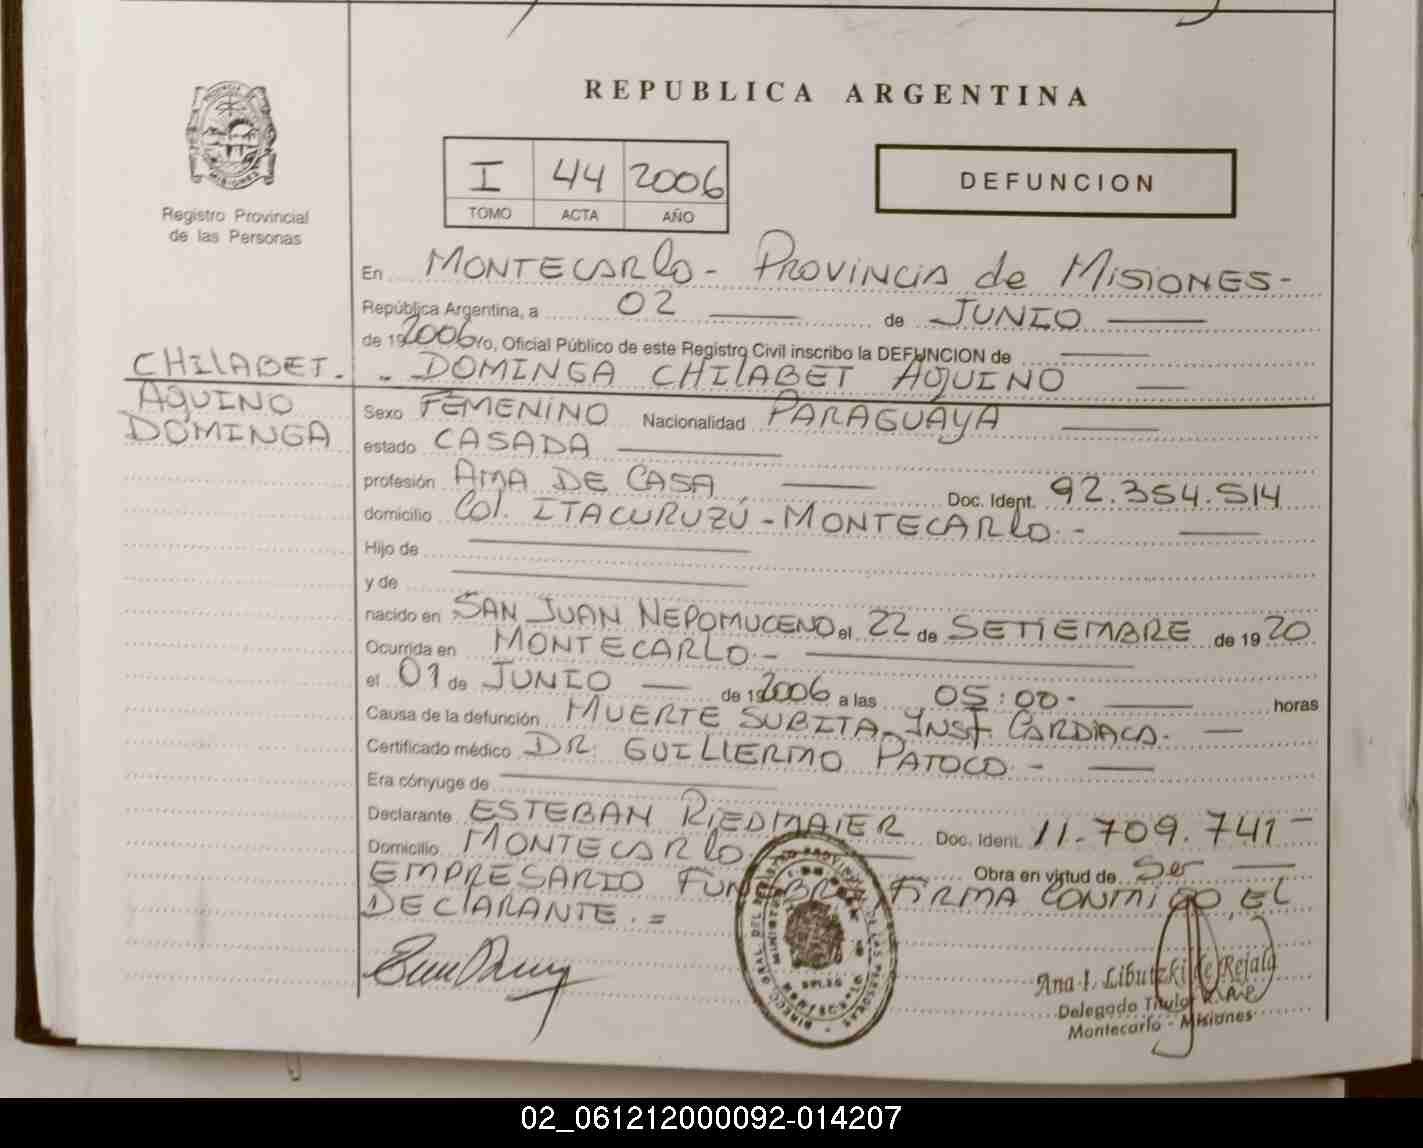 REPUBLICA ARGENTINA
MISIONES
Registro Provincial
de las Personas
I 44 2006
TOMO ACTA AÑO
DEFUNCION
En MONTECARLO - PROVINCIA de MISIONES -
República Argentina, a 02 de JUNIO
de 192006 Yo, Oficial Público de este Registro Civil inscribo la DEFUNCION de
CHILABET.
AQUINO
DOMINGA
- DOMINGA CHILABET AQUINO
Sexo FEMENINO Nacionalidad PARAGUAYA
estado CASADA
profesión AMA DE CASA Doc. Ident. 92.354.514
domicilio Col. ITACURUZU - MONTECARLO -
Hijo de
y de
nacido en SAN JUAN NEPOMUCENO el 22 de SETIEMBRE de 1920
Ocurrida en MONTECARLO -
el 01 de JUNIO de 192006 a las 05:00- horas
Causa de la defunción MUERTE SUBITA - INSF. CARDIACA.
Certificado médico DR. GUILLERMO PATOCO -
Era cónyuge de
Declarante ESTEBAN RIEDMAIER Doc. Ident. 11.709.741 -
Domicilio MONTECARLO
Obra en virtud de Ser
EMPRESARIO FUNEBRE FIRMA CONMIGO, EL
DECLARANTE. =
Ana I. Libutzki de Rejala
Delegado Titular R.A.P.
Montecarlo - Misiones
02_061212000092-014207